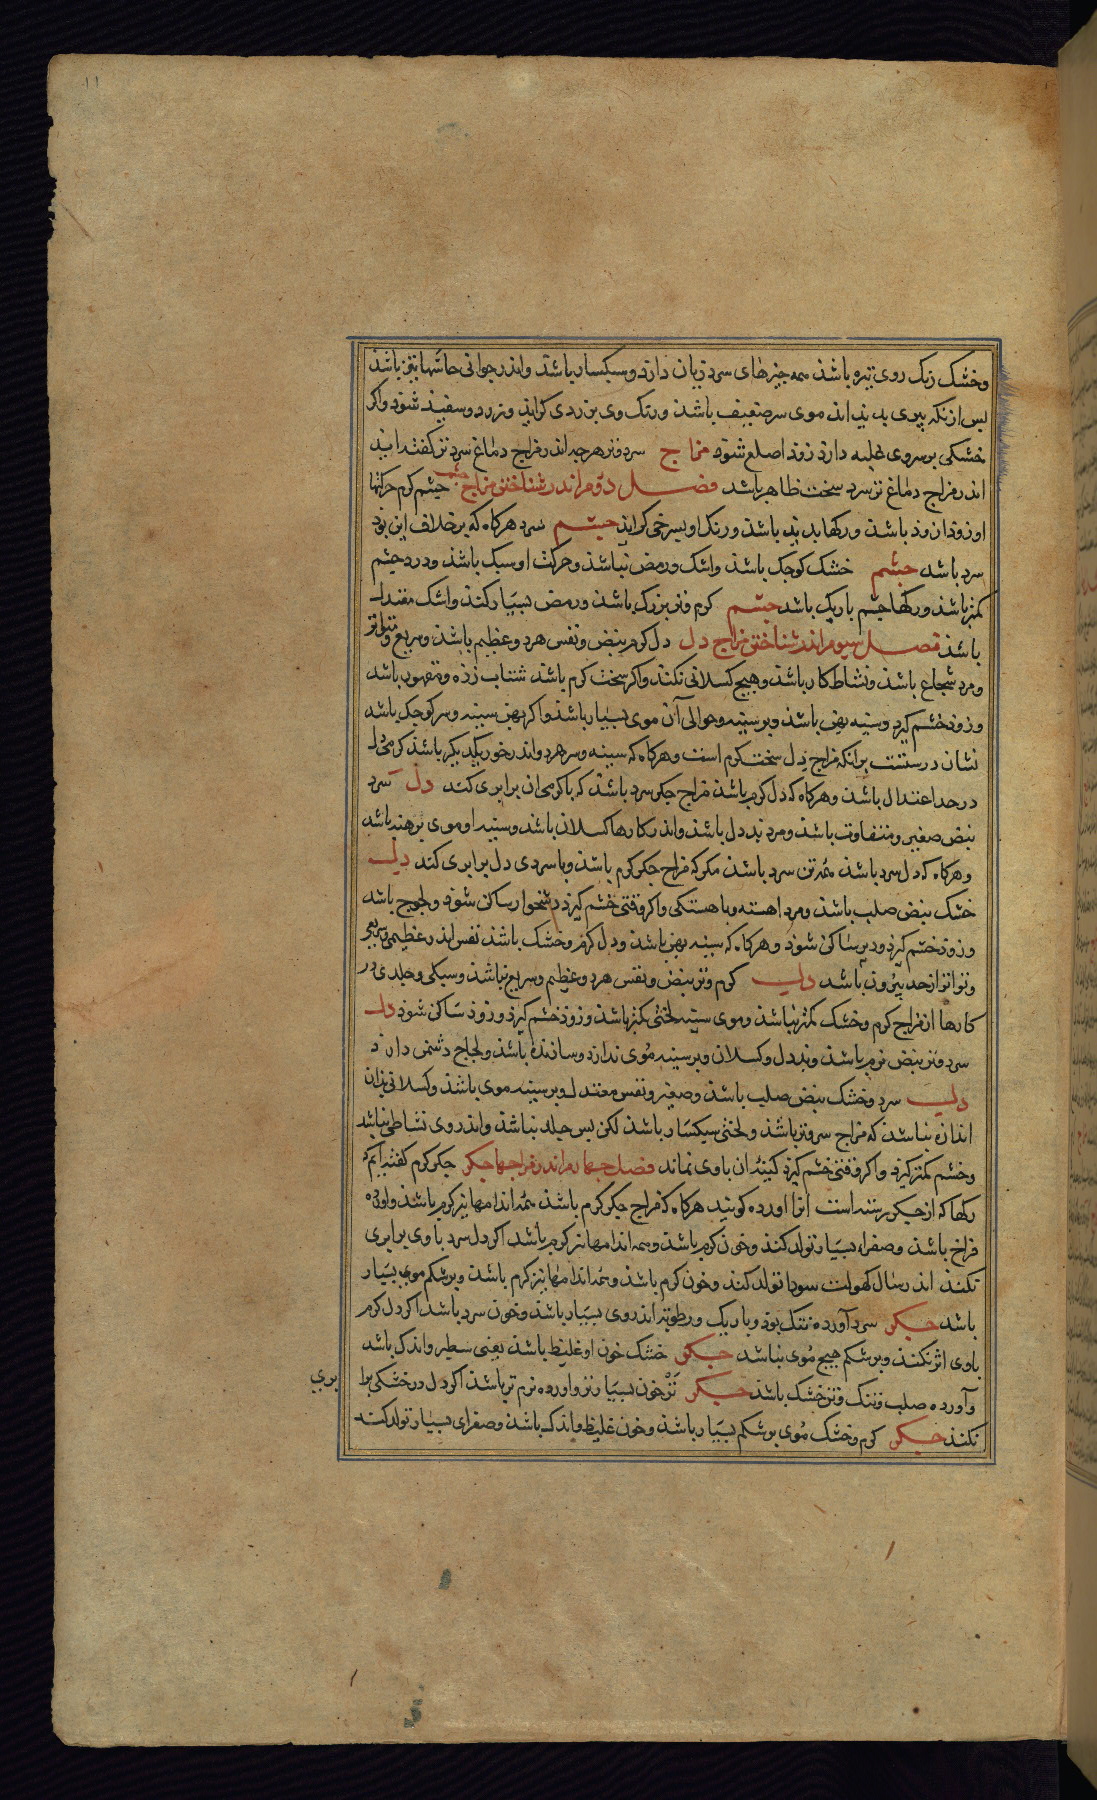 ۱۱
وخشک رنک روی تیره باشذ همه چیزهای سرد زیان دارد وسبکسار باشذ واندر جوانی حاستها تیز باشذ
پس ازنکه پیری پدید اند موی سر ضعیف باشذ ورنک وی بزردی کراید وزود سفید شود واکر
خشکی بر سروی غلبه دارد زود اصلع شود مزاج سرد وتر هرچه اندر مزاج دماغ سرد وتر کفته اید
اندر مزاج دماغ تر سرد سخت ظاهر باشد فصل دوم اندر شناختن مزاج چشم چشم کرم حرکتها
او زودازود باشذ ورکها پدید باشذ ورنک او بسرخی کراید چشم سرد هرکاه که برخلاف این بود
سرد باشد چشم خشک کوچک باشذ واشک ورمص نباشد وحرکت او سبک باشذ ودرد چشم
کمتر باشذ ورکها چشم باریک باشد چشم کرم وتر بزرک باشذ ورمص بسیار کند واشک معتدل
باشذ فصل سیوم اندر شناختن مزاج دل دل کرم نبض ونفس هرد وعظیم باشذ وسریع ومتواتر
ومرد شجاع باشذ ونشاط کار باشذ وهیچ کسلانی نکند واکر سخت کرم باشذ شتاب زده ومتهور باشد
وزود خشم کیرد وسینه پهن باشذ وبر سینه وحوالی آن موی بسیار باشذ واکر پهن سینه وسر کوچک باشد
نشان درستست برانکه مزاج دل سخت کرم است وهرکاه که سینه وسر هرد واندر خور یکدیکر باشذ کرمی دل
درحد اعتدال باشذ وهرکاه که دل کرم باشذ مزاج جکر سرد باشذ که باکرمی ان برابری کند دل سرد
نبض صغیر ومتفاوت باشذ ومرد بددل باشذ واندر کارها کسلان باشد وسینه او موی برهنه باشد
وهرکاه که دل سرد باشذ همه تن سرد باشذ مکر که مزاج جکر کرم باشذ وبا سردی دل برابری کند دل
خشک نبض صلب باشذ ومرد اهسته وباهستکی واکر وقتی خشم کیرد دشخوار ساکن شود ولجوج باشد
وزود خشم کیرد ودیر ساکن شود وهرکاه که سینه پهن باشذ ودل کرم وخشک باشذ نفس اندر عظیمی وسریعی
وتواتر ازحد بیرون باشد دل کرم وتر نبض ونفس هرد وعظیم وسریع باشذ وسبکی وجلدی در
کارها از مزاج کرم وخشک کمتر باشذ وموی سینه لختی کمتر باشذ وزود خشم کیرد وزود ساکن شود دل
سرد وتر نبض نرم باشذ وبددل وکسلان وبر سینه موی ندارد وسازنده باشذ ولجاج دشمن دارد
دل سرد وخشک نبض صلب باشذ وصغیر ونفس معتدل وبر سینه موی باشذ وکسلانی بدان
اندازه نباشد که مزاج سرد وتر باشذ ولختی سبکسار باشذ لکن بس جلد نباشذ واندر وی نشاطی نباشد
وخشم کمتر کیرد واکر وقتی خشم کیرد کینه ان باوی نماند فصل چهارم اندر مزاجها جکر جکر کرم کفته ایم که
رکها که ازجیکر رسته است انرا اورده کویند هرکاه که مزاج جیکر کرم باشذ همه اندامها نیز کرم باشذ واورده
فراخ باشذ وصفراء بسیار تولد کند وخون کرم باشذ وهمه اندامها نیز کرم باشد اکر دل سرد باوی برابری
نکند اندر سال کهولت سودا تولد کند وخون کرم باشذ وهمه اندامها نیز کرم باشذ وبر شکم موی بسیار
باشد جیکر سرد آورده تنک بود وباریک ورطوبة اندروی بسیار باشذ وخون سرد باشد اکر دل کرم
باوی اثر نکند وبر شکم هیچ موی نباشد جیکر خشک خون او غلیظ باشذ یعنی سطبر واندک باشد
وآورده صلب وتنک وتن خشک باشذ جیکر تر خون بسیار ونر واورده نرم تر باشذ اکر دل درخشکی برا
بری
نکند جیکر کرم وخشک موی بر شکم بسیار باشذ وخون غلیظ واندک باشذ وصفرای بسیار تولد کند